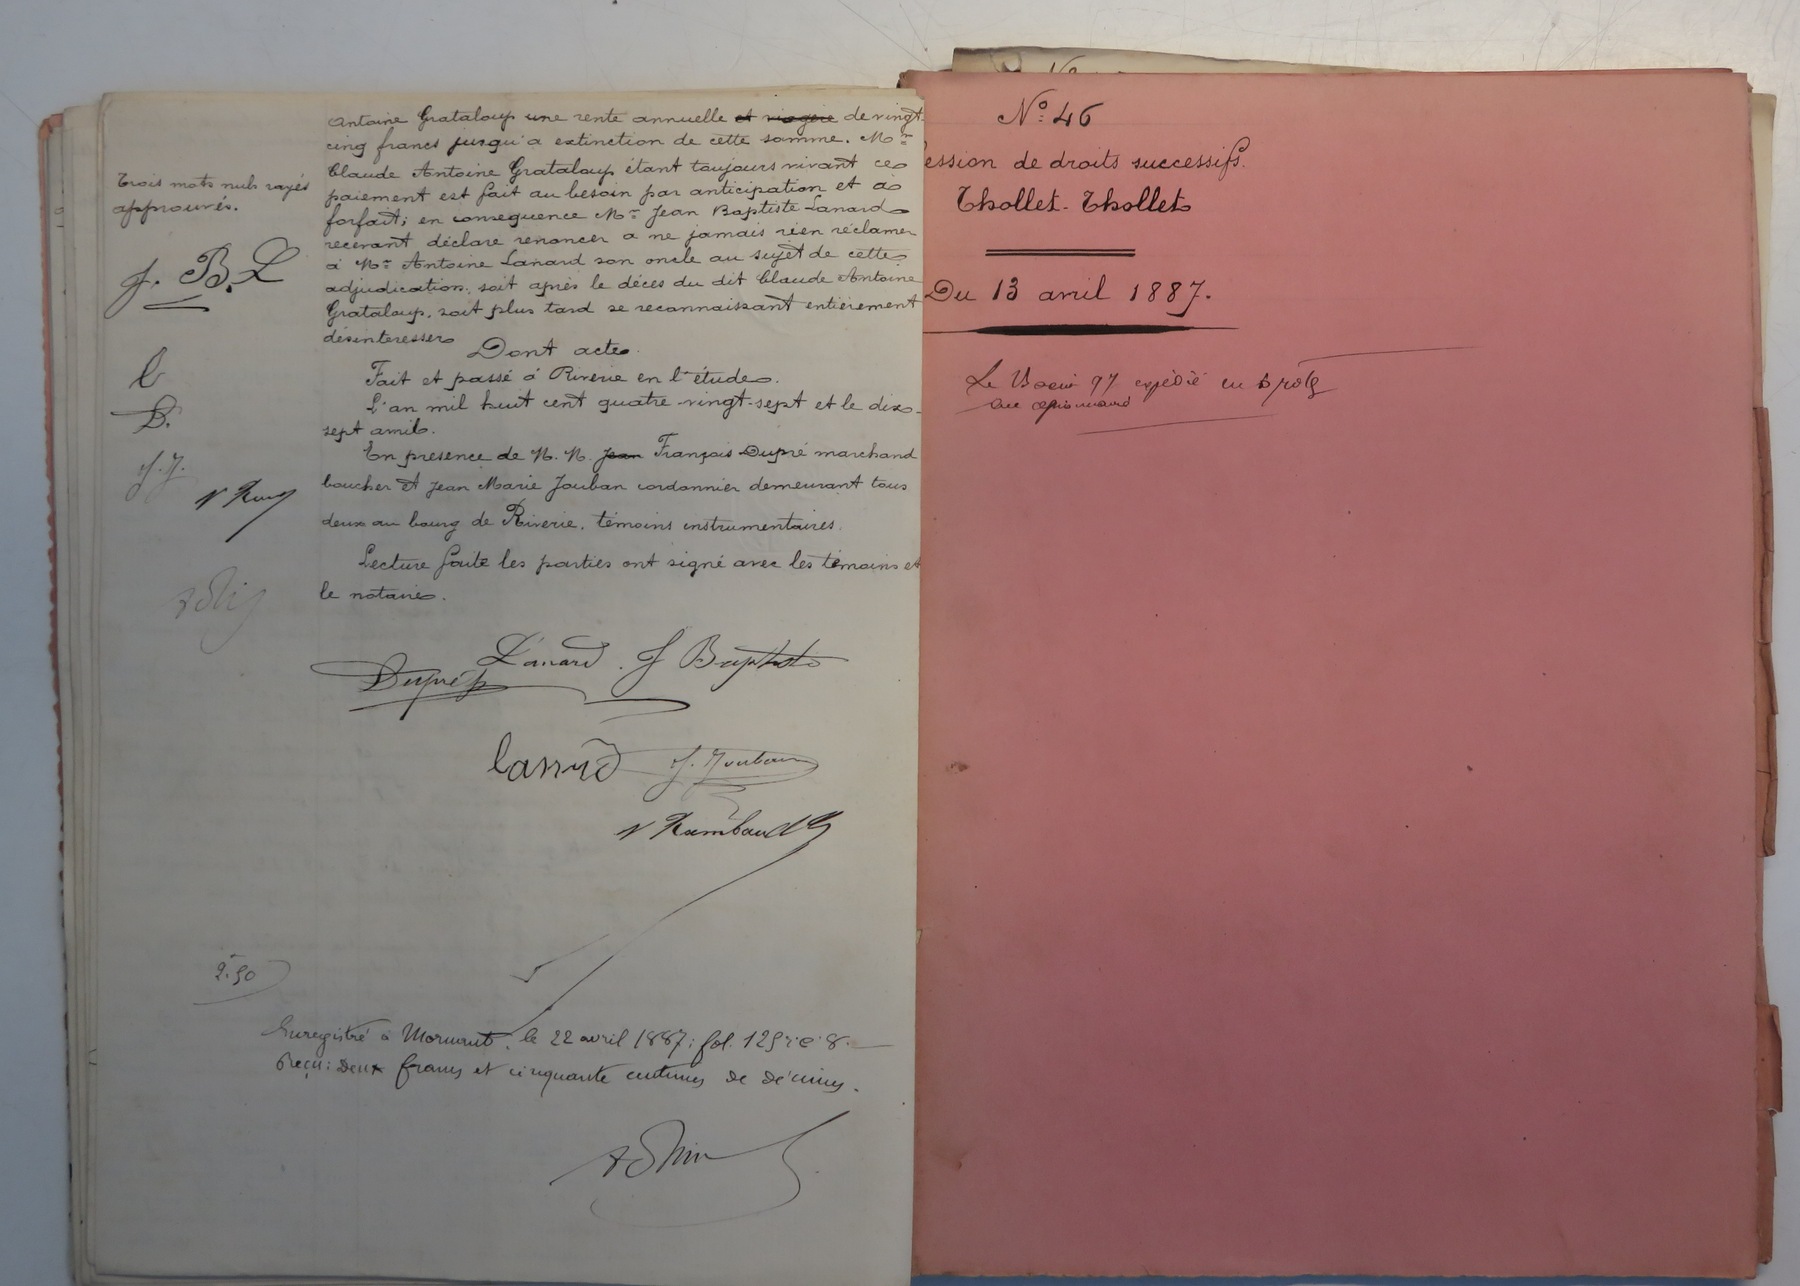 Antoine Grataloup une rente annuelle et viagère de vingt
cinq francs jusqu'a extinction de cette somme. Mr
Claude Antoine Grataloup étant toujours vivant ce
paiement est fait au besoin par anticipation et à
forfait; en consequence Mr Jean Baptiste Lanard
recevant déclare renoncer a ne jamais rien réclamer
à Mr Antoine Lanard son oncle au sujet de cette
adjudication, soit après le décès du dit Claude Antoine
Grataloup, soit plus tard se reconnaissant entièrement
désinteresser
Dont acte.
Fait et passé à Riverie en l'étude.
L'an mil huit cent quatre-vingt-sept et le dix-
sept avril.
En présence de M. M. Jean François Dupré marchand
boucher et Jean Marie Jouban cordonnier demeurant tous
deux au bourg de Riverie, témoins instrumentaires.
Lecture faite les parties ont signé avec les témoins et
le notaire.
Trois mots nuls rayés
approuvés.
J. B. L
L
D.
J. J.
Lanard J Baptiste
Dupré
Lanard J. Jouban
Rambaud
2.50
Enregistré à Mornant, le 22 avril 1887; fol. 125
Reçu: deux francs et cinquante centimes de décimes.
No: 46
ession de droits successifs.
Thollet-Thollet
Du 13 avril 1887.
Le